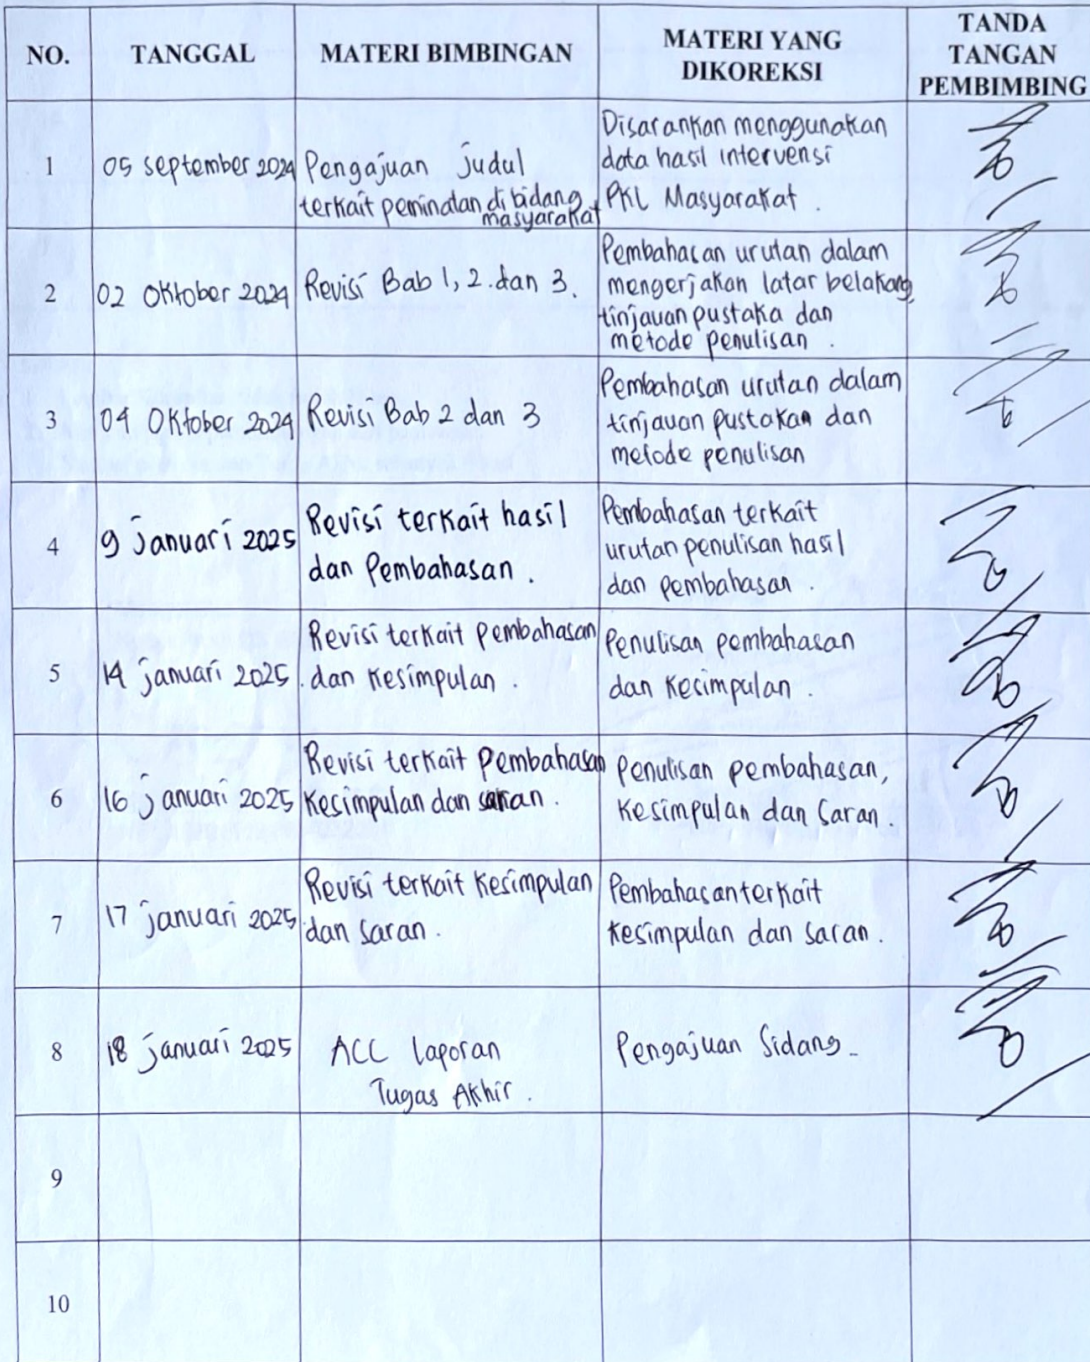 NO.
TANGGAL
MATERI BIMBINGAN
MATERI YANG
DIKOREKSI
TANDA
TANGAN
PEMBIMBING
1
05 september 2024
Pengajuan judul
terkait peminatan di bidang
masyarakat
Disarankan menggunakan
data hasil intervensi
PKL Masyarakat .
2
02 Oktober 2024
Revisi Bab 1, 2. dan 3.
Pembahasan urutan dalam
mengerjakan latar belakang
tinjauan pustaka dan
metode penulisan .
3
04 Oktober 2024
Revisi Bab 2 dan 3
Pembahasan urutan dalam
tinjauan pustakan dan
metode penulisan
4
9 Januari 2025
Revisi terkait hasil
dan Pembahasan .
Pembahasan terkait
urutan penulisan hasil
dan pembahasan .
5
14 januari 2025.
Revisi terkait pembahasan
dan kesimpulan .
Penulisan pembahasan
dan kesimpulan .
6
16 januari 2025
Revisi terkait Pembahasan
kesimpulan dan saran .
Penulisan pembahasan,
kesimpulan dan saran .
7
17 januari 2025
Revisi terkait kesimpulan
dan saran .
Pembahasan terkait
kesimpulan dan saran .
8
18 januari 2025
ACC laporan
Tugas Akhir .
Pengajuan Sidang -
9
10